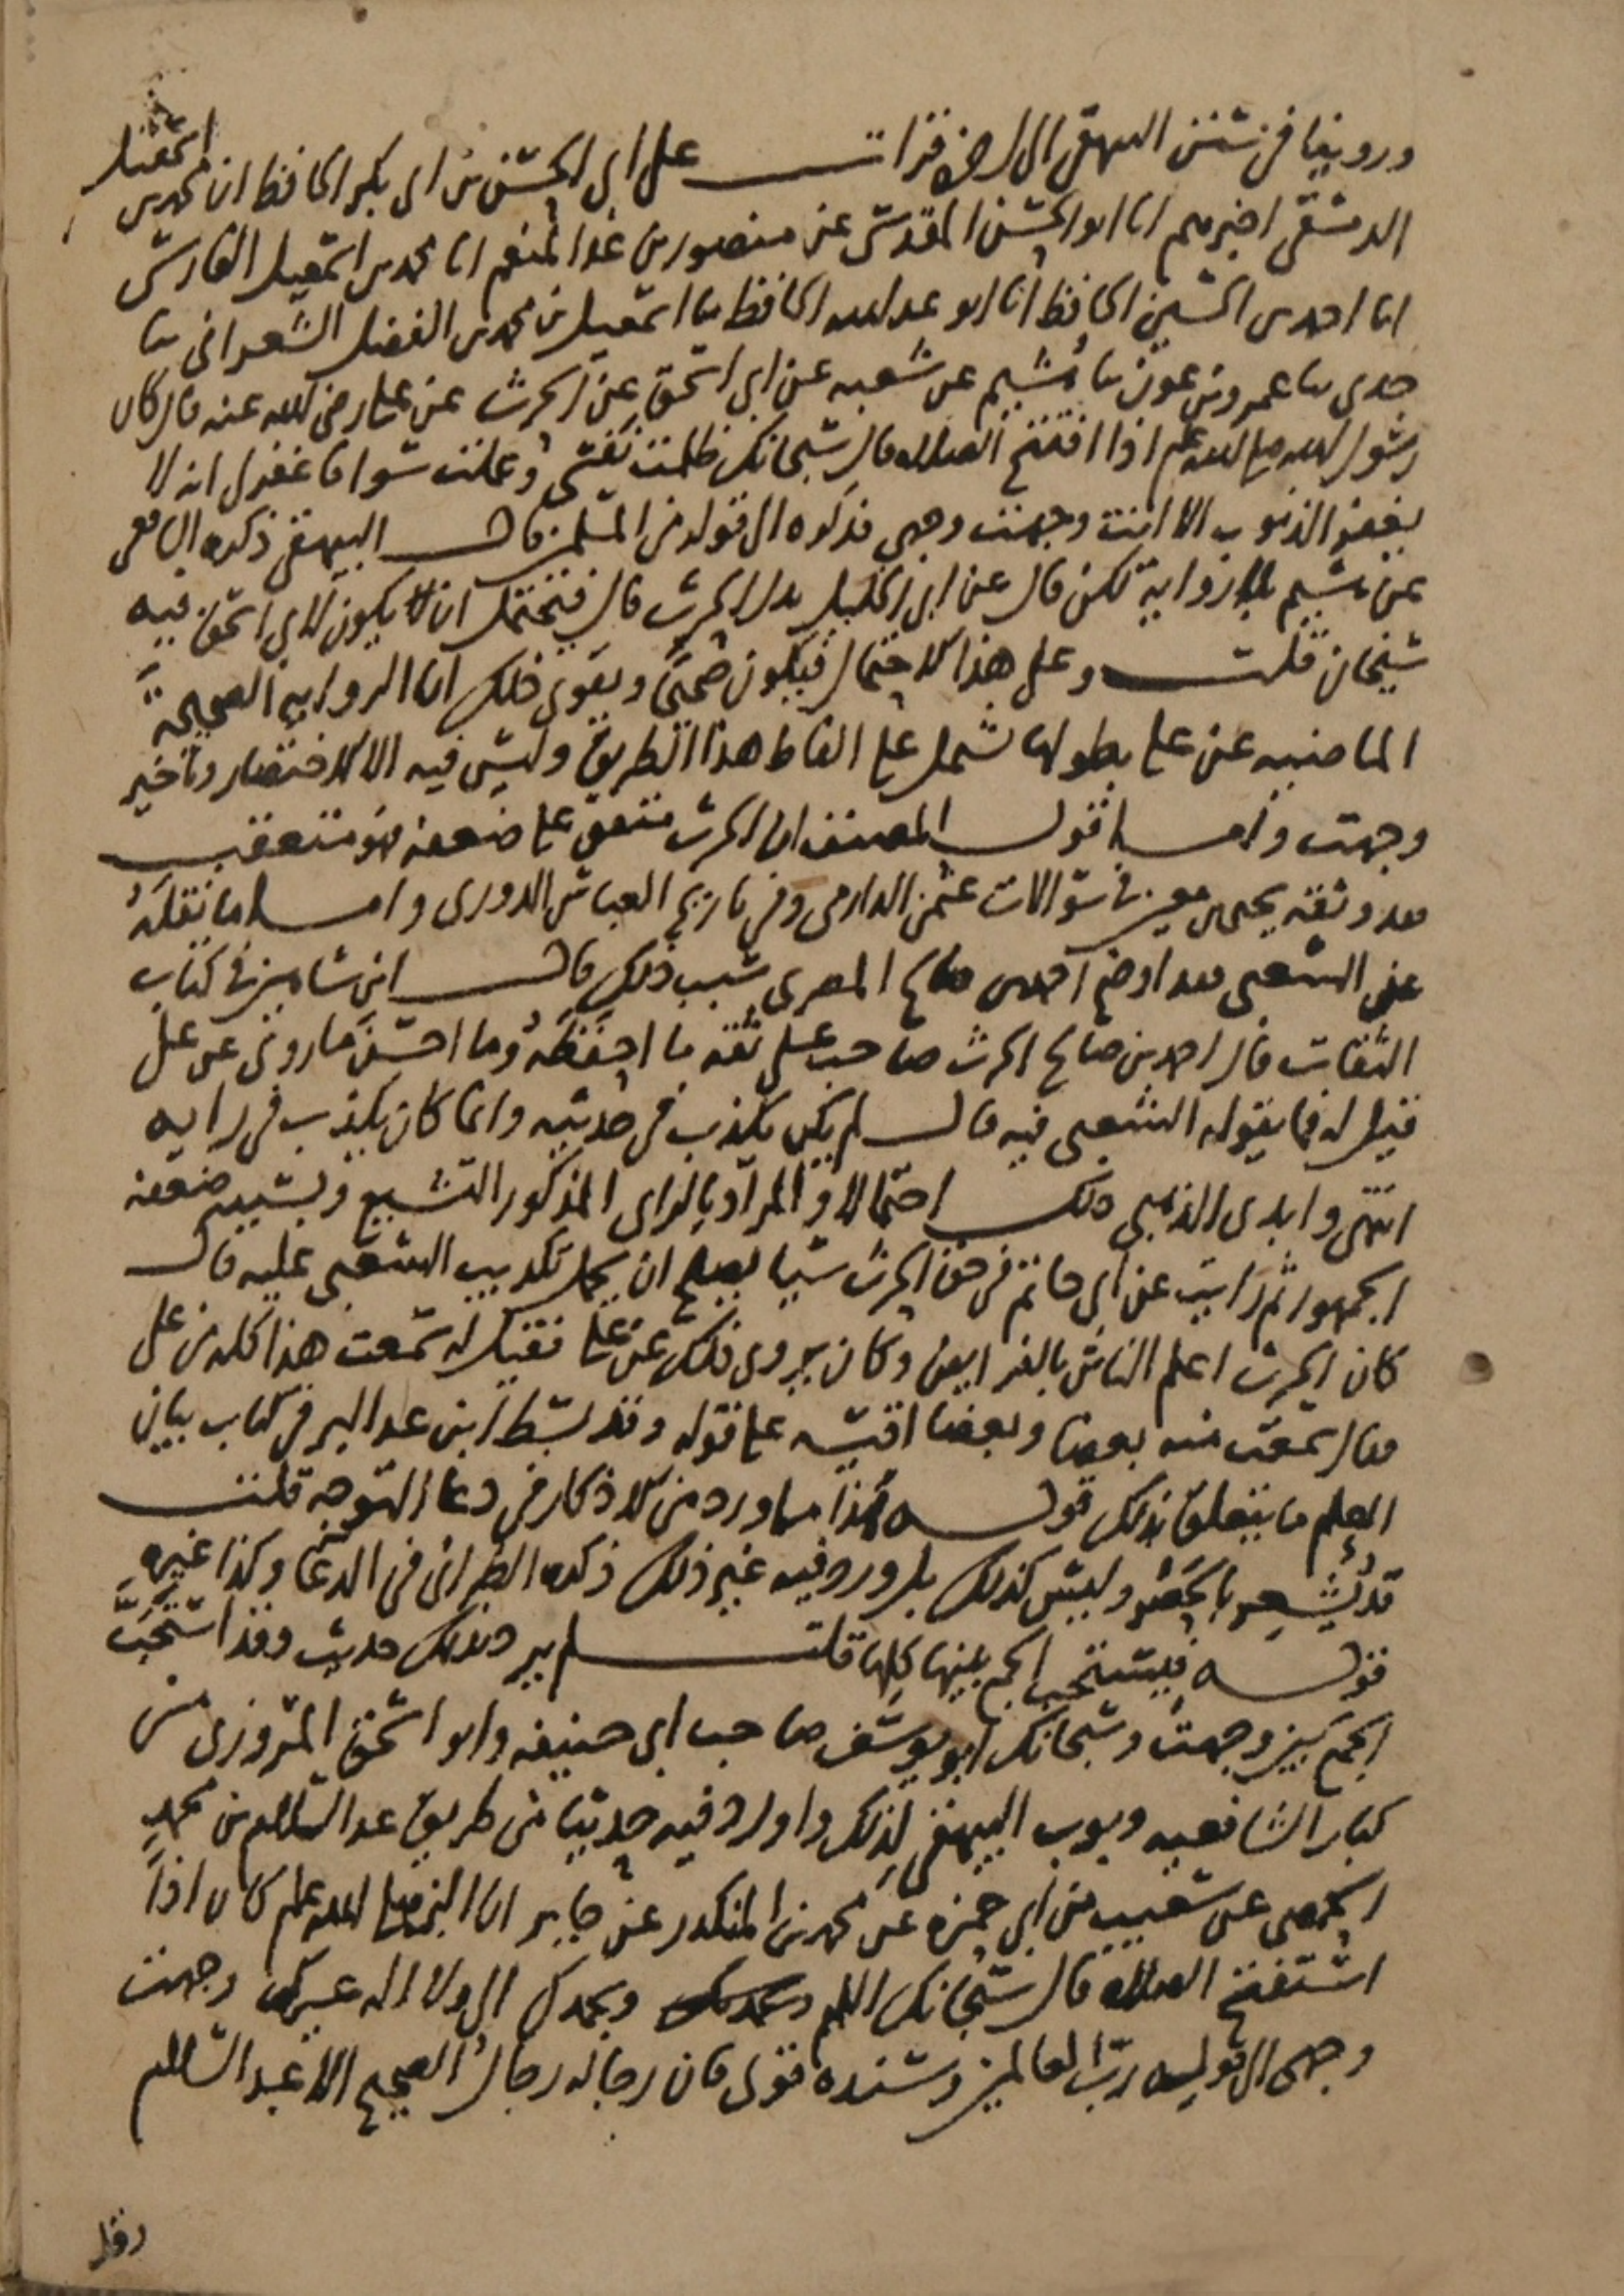 وروينا في سنن البيهقي الى ارض قرات على ابي الحسن بن ابي بكر الحافظ ان محمد بن اسمعيل
الدمشقي اخبرهم انا ابو الحسن المقدسي عن منصور بن عبد المنعم انا محمد بن اسمعيل الفارسي
انا احمد بن الحسين الحافظ انا ابو عبد الله الحافظ ثنا اسمعيل بن محمد بن الفضل الشعراني ثنا
جدي ثنا عمرو بن عون ثنا هشيم عن شعبه عن ابي اسحق عن الحرث عن علي رضي الله عنه قال كان
رسول الله صلى الله عليه وسلم اذا افتتح الصلاه قال سبحانك ظلمت نفسي وعملت سوا فاغفر لي انه لا
يغفر الذنوب الا انت وجهت وجهي فذكره الى قوله من المسلمين قال البيهقي ذكره الشافعي
عن هشيم بلا رواية لكن قال عن ابي الخليل بدل الحرث قال فيحتمل ان يكون لابي اسحق فيه
شيخان قلت وعلى هذا الاحتمال فيكون صحيحا ويقوي ذلك ان الرواية الصحيحة
الماضيه عن علي بطولها تشتمل على الفاظ هذا الطريق وليس فيه الا الاختصار وتاخير
وجهت واما قول المصنف ان الحرث متفق على ضعفه فهو متعقب
فقد وثقه يحيى بن معين في سوالات عثمن الدارمي وفي تاريخ العباس الدوري واما ما نقله
عن الشعبي فقد اوضح احمد بن صالح المصري سبب ذلك قال ابن شاهين في كتاب
الثقات قال احمد بن صالح الحرث صاحب علي ثقه ما احفظه وما احسن ما روى عن علي
فقيل له فما يقوله الشعبي فيه قال لم يكن يكذب في حديثه وانما كان يكذب في رايه
انتهى وابدى الذهبي ذلك احتمالا والمراد بالراي المذكور التشيع وبسببه ضعفه
الجمهور ثم رايت عن ابي حاتم في حق الحرث شيا يصلح ان يحمل تكذيب الشعبي عليه قال
كان الحرث اعلم الناس بالفرايض وكان يروي ذلك عن علي فقيل له سمعت هذا كله من علي
فقال سمعت منه بعضا وبعضا اقيسه على قوله وقد بسط ابن عبد البر في كتاب بيان
العلم ما يتعلق بذلك قوله فهذا ما ورد من الاذكار في دعا التوجه قلت
قد يشعر بالحصر وليس كذلك بل ورد فيه غير ذلك ذكره الطبراني في الدعا وكذا غيره
قوله فيستحب الجمع بينها كلها قلت لم يرد بذلك حديث وقد استحب
الجمع بين وجهت وسبحانك ابو يوسف صاحب ابي حنيفه وابو اسحق المروزي من
كبار الشافعيه وبوب البيهقي لذلك واورد فيه حديثا من طريق عبد السلام بن محمد
الحمصي عن شعيب بن ابي حمزه عن محمد بن المنكدر عن جابر ان النبي صلى الله عليه وسلم كان اذا
استفتح الصلاه قال سبحانك اللهم وبحمدك وبحمدك الى ولا اله غيرك وجهت
وجهي الى قوله رب العالمين وسنده قوي فان رجاله رجال الصحيح الا عبد السلام
وقد